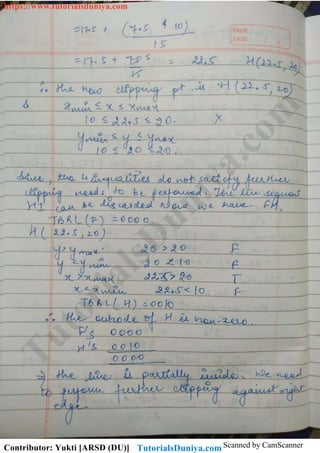 https://www.tutorialsduniya.com
PAGE
DATE
=17.5 + (7.5 * 10)
15
=17.5 + 75.5 = 22.5 H(22.5, 20)
15
∴ the new clipping pt. is H(22.5, 20)
& xmin ≤ x ≤ xmax
10 ≤ 22.5 ≤ 20. X
ymin ≤ y ≤ ymax
10 ≤ 20 ≤ 20.
Since, the 4 inequalities do not satisfy further
clipping needs to be performed. The line segment
HI can be discarded Now we have FH.
TBRL (F) = 0000.
H( 22.5, 20)
y > ymax. 20 > 20 F
y < ymin 20 < 10 F
x > xmax 22.5 > 20 T
x < xmin 22.5 < 10 F
TBRL( H) = 0010
∴ the outcode of H is non-zero.
F's 0000
H's 0010
0000
⇒ the line is partially inside. We need
to perform further clipping against right
edge.
TutorialsDuniya.com
Contributor: Yukti [ARSD (DU)] TutorialsDuniya.com Scanned by CamScanner